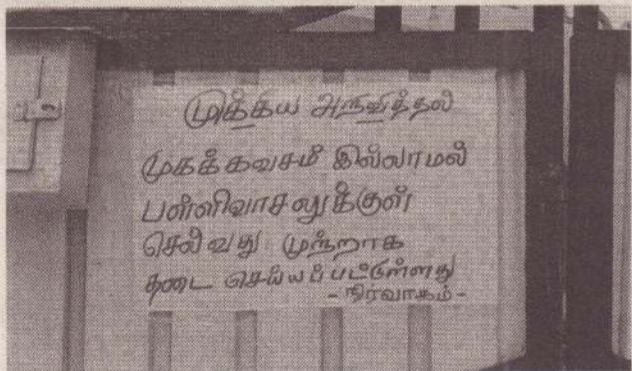 முக்கிய அறவித்தல்
முகக்கவசம் இல்லாமல்
பள்ளிவாசலுக்குள்
செல்வது முற்றாக
தடை செய்யப்பட்டுள்ளது
- நிர்வாகம் -